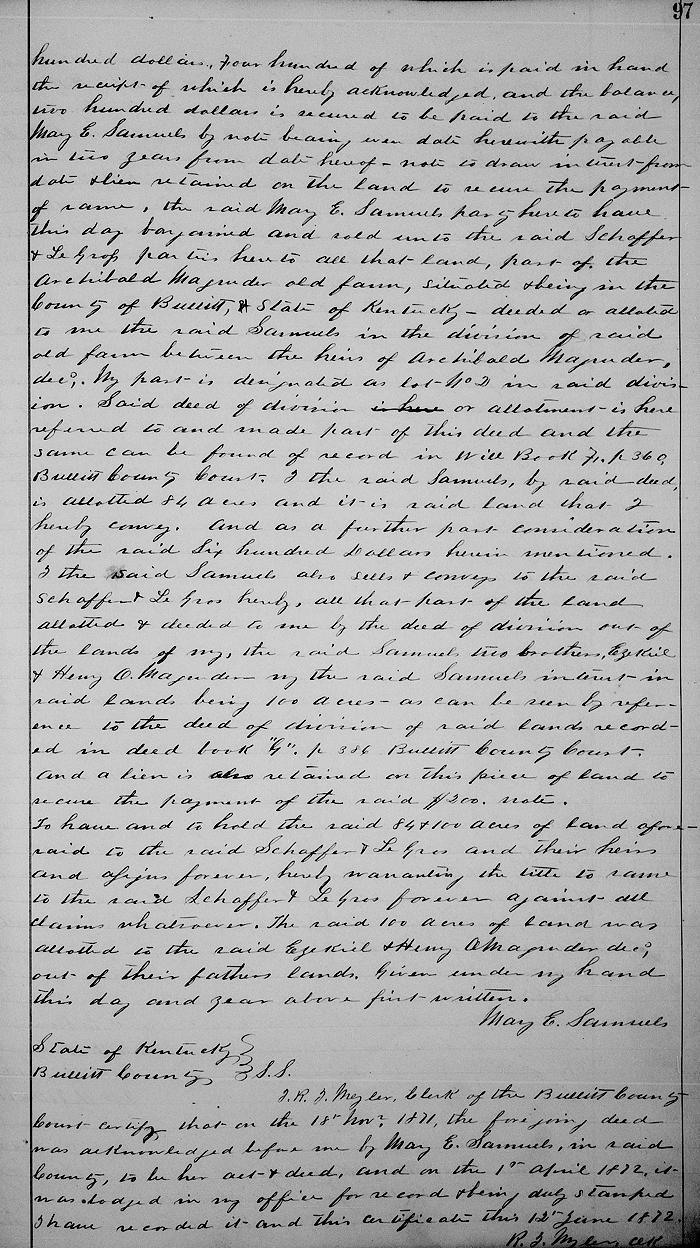 97
hundred dollars, Four hundred of which is paid in hand
the receipt of which is hereby acknowledged, and the balance,
two hundred dollars is secured to be paid to the said
Mary E. Samuels by note bearing even date herewith payable
in two years from date hereof - note to draw interest from
date & lien retained on the land to secure the payment
of same, the said Mary E. Samuels party hereto have
this day bargained and sold unto the said Schaffer
& Le Gross parties hereto all that land, part of the
Archibald Magruder old farm, situated & being in the
County of Bullitt, & State of Kentucky - deeded or alloted
to me the said Samuels in the division of said
old farm between the heirs of Archibald Magruder,
decd,. My part is designated as lot No D in said divis-
ion. Said deed of division is here or allotment is here
referred to and made part of this deed and the
same can be found of record in Will Book F, p 360,
Bullitt County Court. I the said Samuels, by said deed,
is allotted 84 acres and it is said land that I
hereby convey. And as a further part consideration
of the said Six hundred Dollars herein mentioned.
I the said Samuels also sells & conveys to the said
Schaffer & Le Gros hereby, all that part of the land
allotted & deeded to me by the deed of division out of
the lands of my, the said Samuels two brothers, Ezekiel
& Henry O. Magruder my the said Samuels interest in
said lands being 100 acres - as can be seen by refer-
ence to the deed of division of said lands record-
ed in deed book "G". p 386 Bullitt County Court.
and a lien is also retained on this piece of land to
secure the payment of the said $200. note.
To have and to hold the said 84 & 100 acres of land afore-
said to the said Schaffer & Le Gros and their heirs
and assigns forever, hereby warranting the title to same
to the said Schaffer & Le Gros forever against all
claims whatsoever. The said 100 acres of land was
allotted to the said Ezekiel & Henry O Magruder decd,
out of their fathers lands. Given under my hand
this day and year above first written.
Mary E. Samuels
State of Kentucky }
Bullitt County } S.S.
I. R. J. Meyler, Clerk of the Bullitt County
Court certify that on the 18th Novr, 1871, the foregoing deed
was acknowledged before me by Mary E. Samuels, in said
County, to be her act & deed, and on the 1st April 1872, it
was lodged in my office for record & being duly stamped
I have recorded it and this certificate this 12th June 1872.
R. J. Meyler, clk